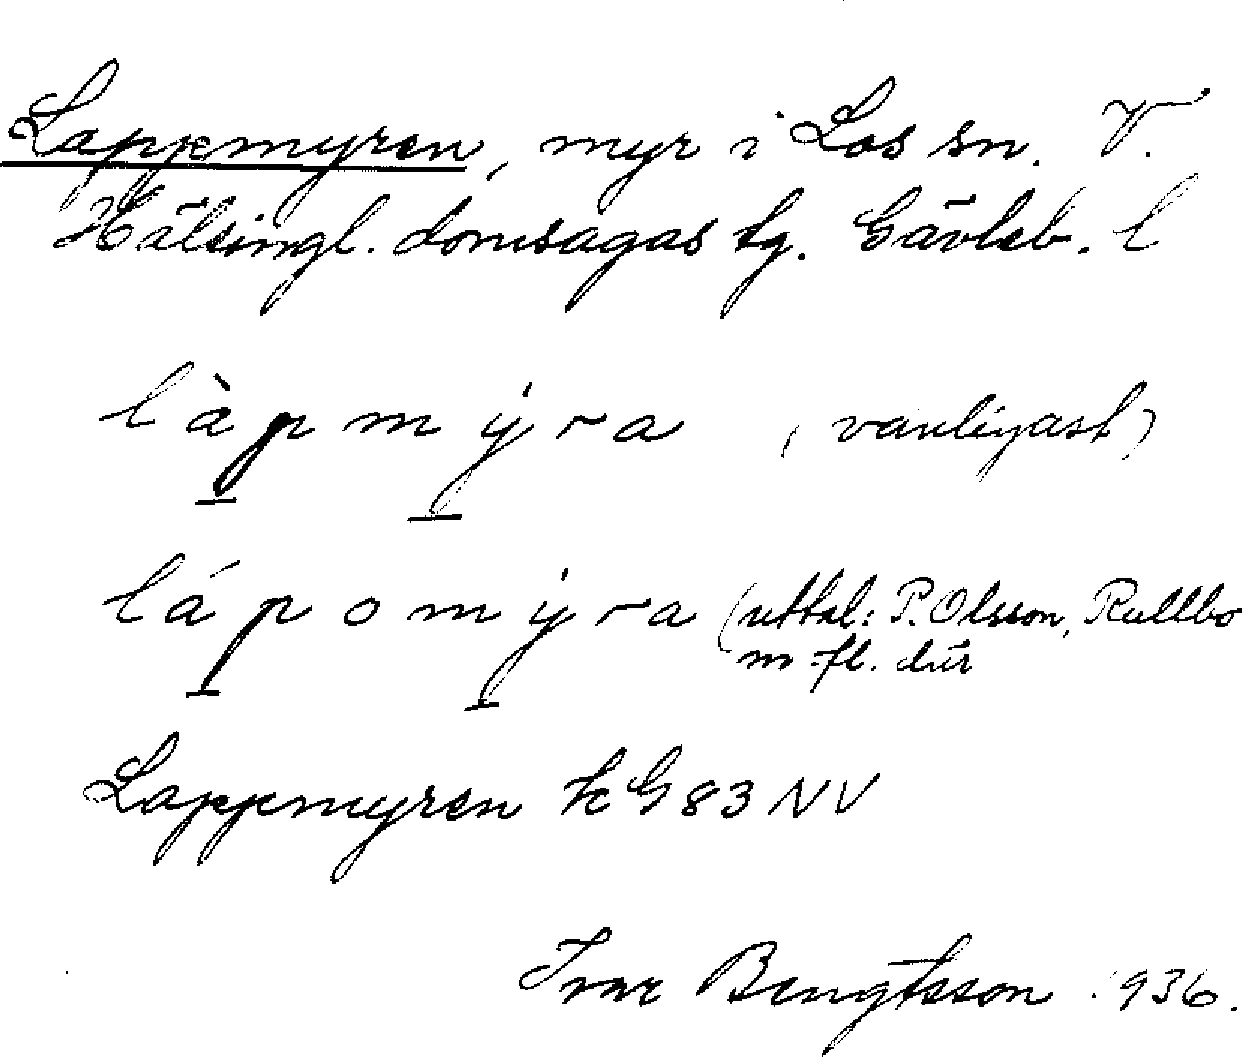 Lappmyren, myr i Los sn. V.
Hälsingl. domsagas tg. Gävleb. l
làpmýra (vanligast)
lápomýra (uttal: P. Olsson, Rullbo
m. fl. där
Lappmyren k G 83 NV
Ivar Bengtsson 1936.